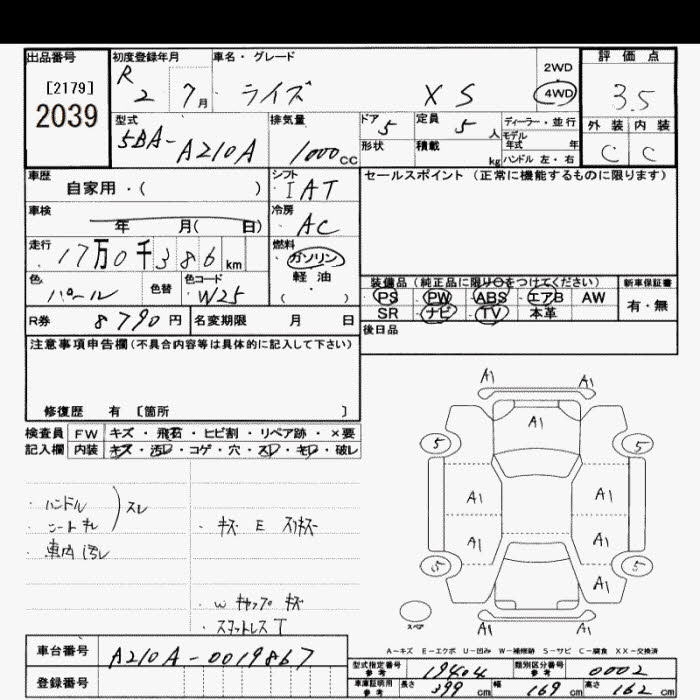 出品番号 初度登録年月 車名・グレード 2WD 評価点
[2179] R 2 7月 ライズ XS 4WD 3.5
2039
型式 排気量 ドア 定員 ディーラー・並行 外装 内装
5BA-A210A 1000cc 5 5人 モデル年式 年 C C
形状 積載 kg ハンドル 左・右
車歴 シフト セールスポイント (正常に機能するものに限ります)
自家用・( ) IAT
車検 冷房
年 月( 日) AC
走行 燃料
17万0千386km ガソリン
軽・油
( )
色 色替 色コード 装備品 (純正品に限り○をつけてください) 新車保証書
パール W25 PS PW ABS エアB AW 有・無
SR ナビ TV 本革
R券 8790円 名変期限 月 日 後日品
注意事項申告欄(不具合内容等は具体的に記入して下さい)
修復歴 有 [箇所 ]
検査員 FW キズ・飛石・ヒビ割・リペア跡・×要
記入欄 内装 キズ・汚レ・コゲ・穴・スレ・キレ・破レ
・ハンドル
スレ
・車内汚レ
・キズ E スリキズ
・W キャップ キズ
・スペアレス T
A1 A1
A1
5 5
A1 A1
A1 A1
A1
5 5
スペア
A1 A1
A-キズ E-エクボ U-凹み W-補修跡 S-サビ C-腐食 XX-交換済
車台番号 A210A-0019867
型式指定番号 参考 19404 類別区分番号 参考 0002
登録番号
車庫証明用 参考 長さ 399cm 幅 169cm 高さ 162cm